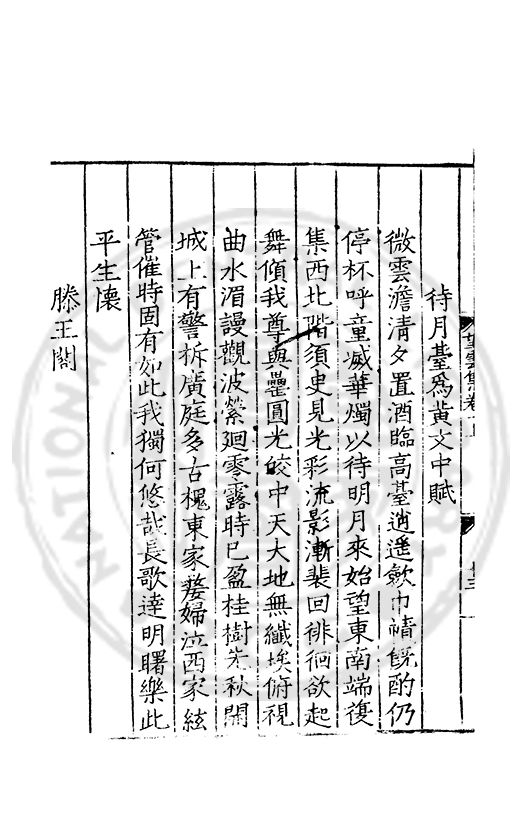 待月臺爲黃文中賦
微雲澹清夕置酒臨高臺逍遙欹巾幘旣酌仍
停杯呼童滅華燭以待明月來始望東南端復
集西北階須臾見光彩流影漸裴回徘徊欲起
舞傾我尊與罍圓光皎中天大地無纖埃俯視
曲水湄謾觀波縈迴零露時已盈桂樹先秋開
城上有警柝廣庭多古槐東家嫠婦泣西家絃
管催時固有如此我獨何悠哉長歌達明曙樂此
平生懷
滕王閣
望雲集卷